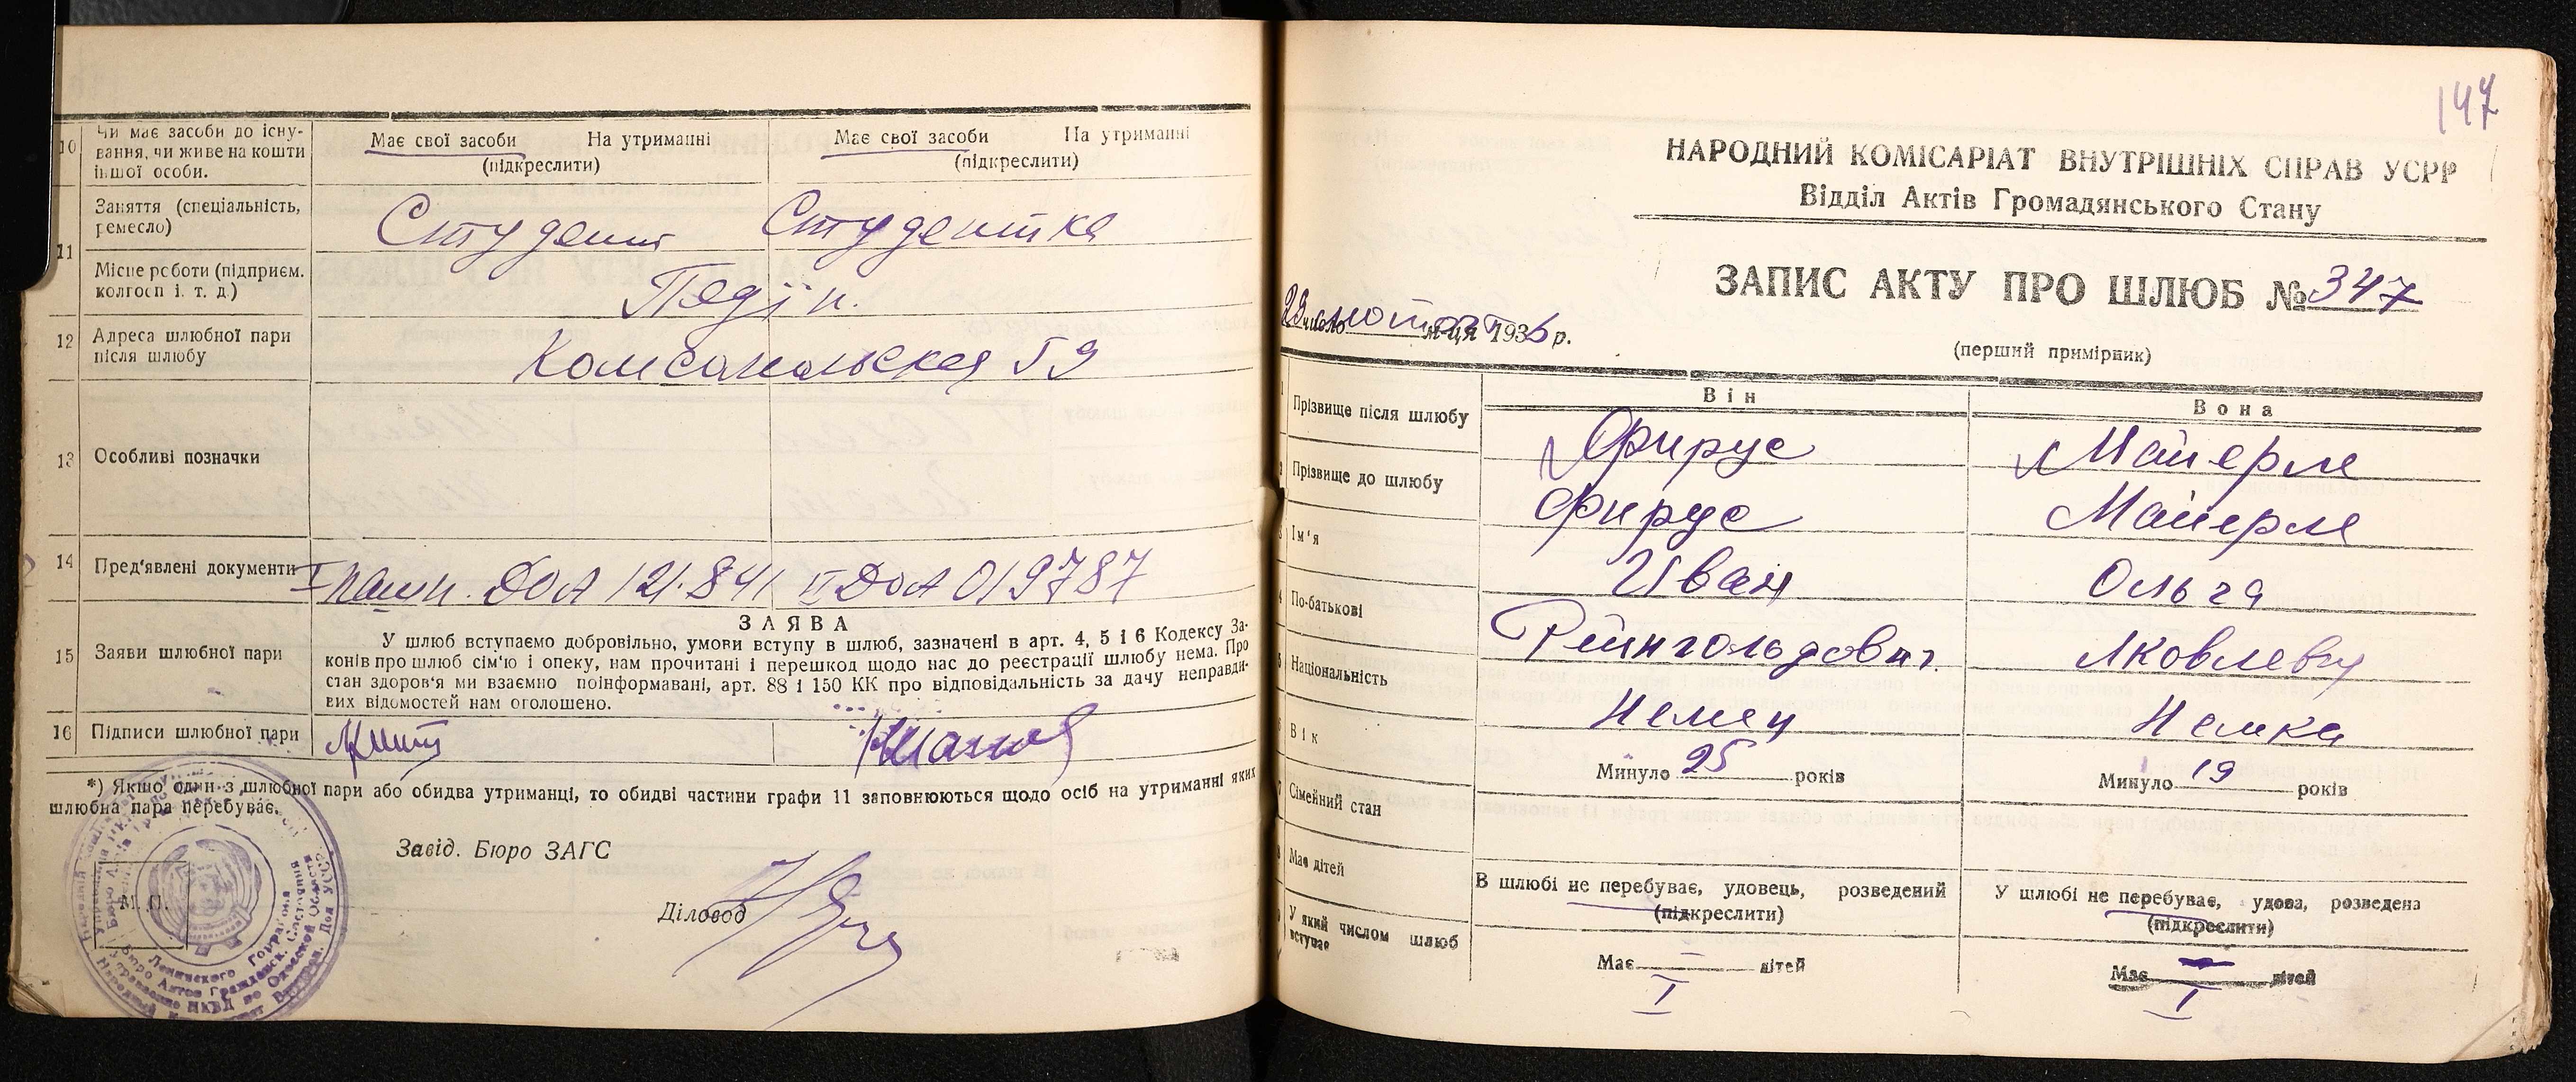 10 Чи має засоби до існу-
вання, чи живе на кошти
іншої особи.
Має свої засоби На утриманні
(підкреслити)
Має свої засоби На утриманні
(підкреслити)
11 Заняття (спеціяльність,
ремесло)
Студент Студентка
Місце роботи (підприєм.
колгосп і. т. д.)
Педін.
12 Адреса шлюбної пари
після шлюбу
Комсомольская 59
13 Особливі позначки
14 Пред'явлені документи
I пашп. ДОА 121.841 II ДОА 019787
15 Заяви шлюбної пари
ЗАЯВА
У шлюб вступаємо добровільно, умови вступу в шлюб, зазначені в арт. 4, 5 і 6 Кодексу За-
конів про шлюб сім'ю і опеку, нам прочитані і перешкод щодо нас до реєстрації шлюбу нема. Про
стан здоров'я ми взаємно поінформавані, арт. 88 і 150 КК про відповідальність за дачу неправди-
вих відомостей нам оголошено.
16 Підписи шлюбної пари
*) Якщо один з шлюбної пари або обидва утриманці, то обидві частини графи 11 заповнюються щодо осіб на утриманні яких
шлюбна пара перебуває.
Завід. Бюро ЗАГС
Діловод
М. П.
147
НАРОДНИЙ КОМІСАРІАТ ВНУТРІШНІХ СПРАВ УСРР
Відділ Актів Громадянського Стану
ЗАПИС АКТУ ПРО ШЛЮБ № 347
23 число лютого м-ця 1936 р.
(перший примірник)
Він Вона
Прізвище після шлюбу Фирус Майерле
Прізвище до шлюбу Фирус Майерле
Ім'я Иван Ольга
По-батькові Рейнгольдович Яковлевна
Національність Немец Немка
Вік Минуло 25 років Минуло 19 років
Сімейний стан
В шлюбі не перебуває, удовець, розведений
(підкреслити)
У шлюбі не перебуває, удова, розведена
(підкреслити)
Має дітей
Має — дітей Має — дітей
У який числом шлюб
вступає
I I